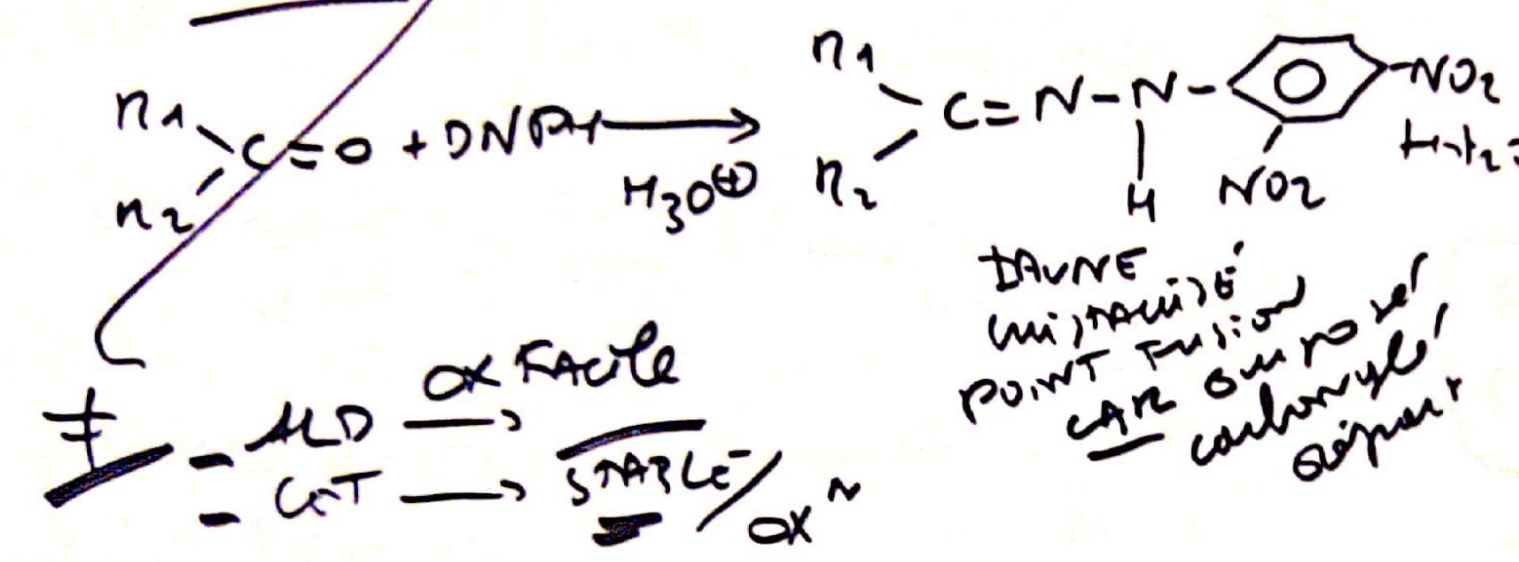 R1
C=O + DNPH
R2
H3O⊕
R1
C=N-N-
R2
H
NO2
NO2
JAUNE
CRISTALLISÉ
POINT FUSION
CAR composé
carbonylé
départ
≠
- ALD → OX FACILE
- CET → STABLE/OXN